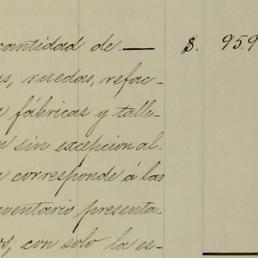 cantidad de — $. 95.9
as, ruedas, refac-
fábricas y talle-
n sin excepcion al-
corresponde á las
ventario presenta
os, con solo la es-